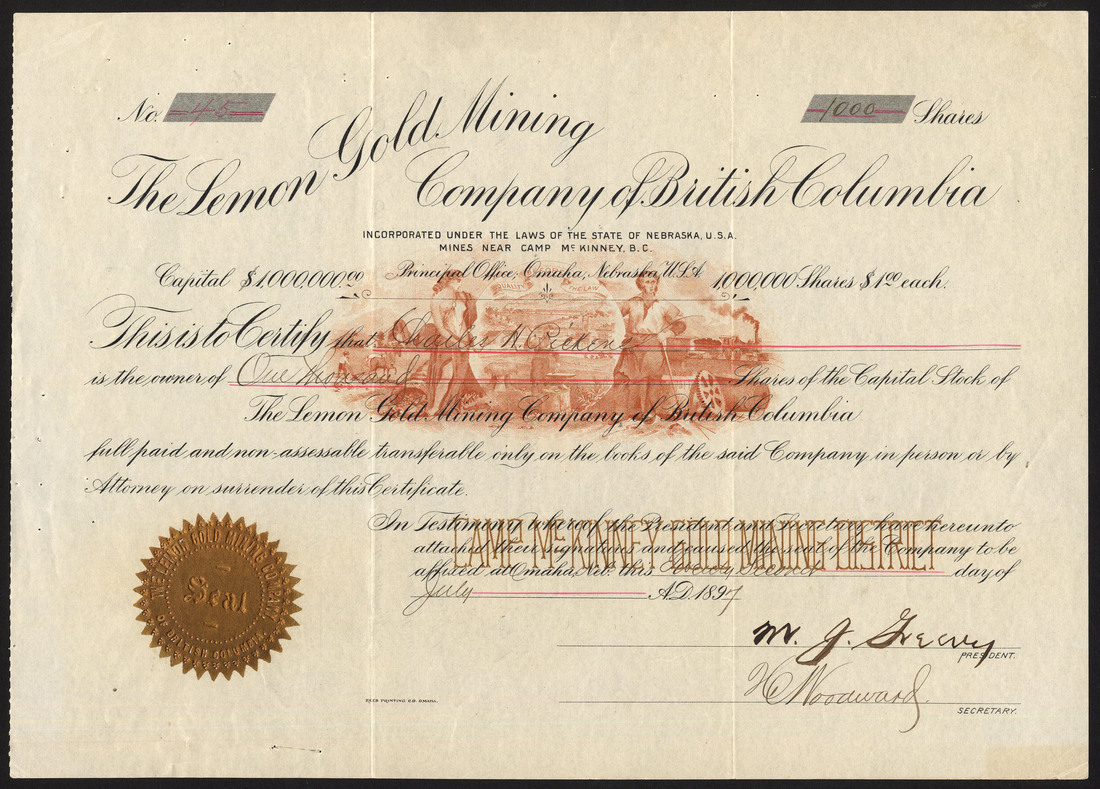 No. 45
1000 Shares
The Lemon Gold Mining Company of British Columbia
INCORPORATED UNDER THE LAWS OF THE STATE OF NEBRASKA, U.S.A.
MINES NEAR CAMP Mc KINNEY, B.C.
Capital $1,000,000.00 Principal Office, Omaha, Nebraska, U.S.A. 1,000,000 Shares $1.00 each.
EQUALITY THE LAW
This is to Certify that Charles H. Pickens
is the owner of One thousand Shares of the Capital Stock of
The Lemon Gold Mining Company of British Columbia
full paid and non-assessable transferable only on the books of the said Company in person or by
Attorney on surrender of this Certificate.
In Testimony whereof the President and Secretary have hereunto
attached their signatures and caused the seal of the Company to be
affixed at Omaha, Neb. this day of
July A.D. 1897
CAMP McKINNEY GOLD MINING DISTRICT
THE LEMON GOLD MINING COMPANY OF BRITISH COLUMBIA
Seal
M. J. Greevy
PRESIDENT.
H Woodward
SECRETARY.
REES PRINTING CO. OMAHA.